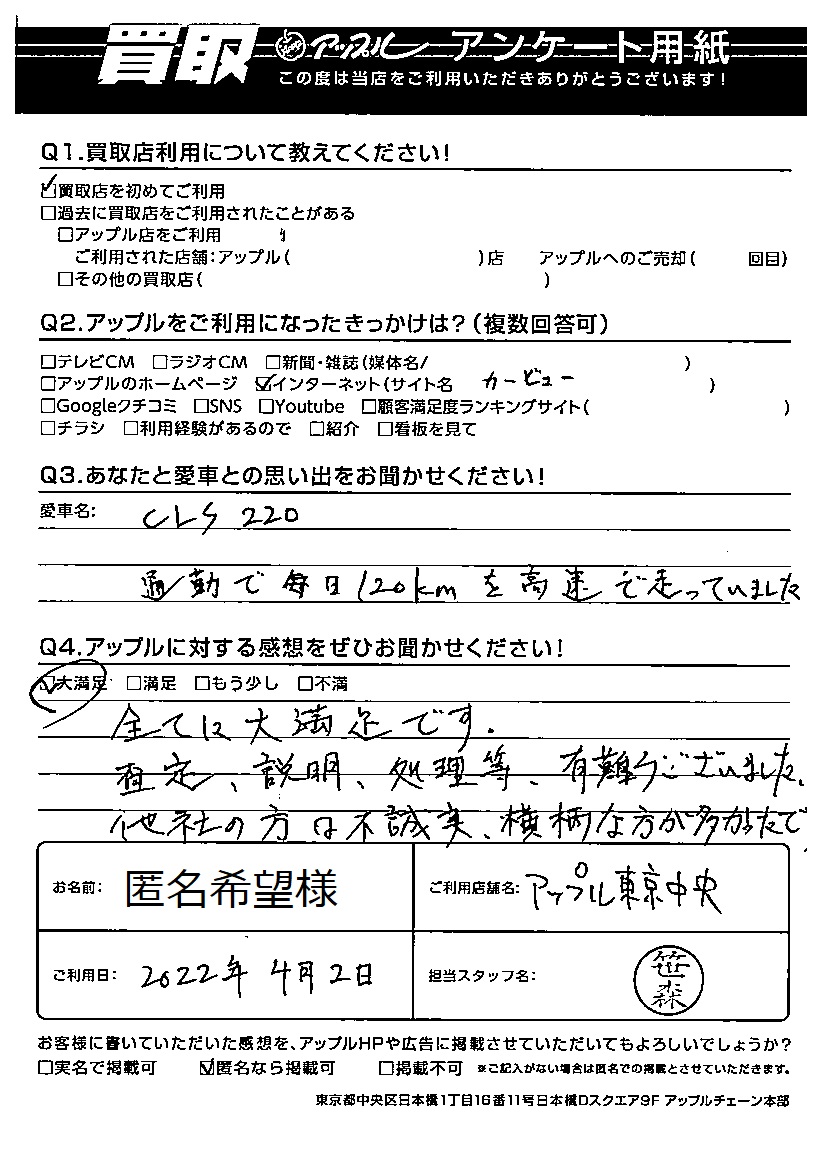 買取 Apple アップル アンケート用紙
この度は当店をご利用いただきありがとうございます!
Q1.買取店利用について教えてください!
☑買取店を初めてご利用
□過去に買取店をご利用されたことがある
□アップル店をご利用
ご利用された店舗:アップル( )店 アップルへのご売却( 回目)
□その他の買取店( )
Q2.アップルをご利用になったきっかけは?(複数回答可)
□テレビCM □ラジオCM □新聞・雑誌(媒体名/ )
□アップルのホームページ ☑インターネット(サイト名 カービュー )
□Googleクチコミ □SNS □Youtube □顧客満足度ランキングサイト( )
□チラシ □利用経験があるので □紹介 □看板を見て
Q3.あなたと愛車との思い出をお聞かせください!
愛車名: CLS 220
通勤で毎日120kmを高速で走っていました
Q4.アップルに対する感想をぜひお聞かせください!
☑大満足 □満足 □もう少し □不満
全てに大満足です.
査定、説明、処理等、有難うございました、
他社の方は不誠実、横柄な方が多かったで、
お名前: 匿名希望様 ご利用店舗名: アップル東京中央
ご利用日: 2022年 4月2日 担当スタッフ名: 笹森
お客様に書いていただいた感想を、アップルHPや広告に掲載させていただいてもよろしいでしょうか?
□実名で掲載可 ☑匿名なら掲載可 □掲載不可 ※ご記入がない場合は匿名での掲載とさせていただきます。
東京都中央区日本橋1丁目16番11号日本橋Dスクエア9F アップルチェーン本部